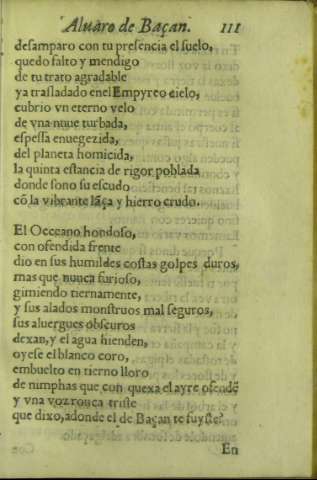 Aluaro de Baçan. 111
desamparo con tu presencia el suelo,
quedo falto y mendigo
de tu trato agradable
ya trasladado enel Empyreo cielo,
cubrio vn eterno velo
de vna nuue turbada,
espessa enuegezida,
del planeta homicida,
la quinta estancia de rigor poblada
donde sono su escudo
cõ la vibrante lãça y hierro crudo.
El Occeano hondoso,
con ofendida frente
dio en sus humildes costas golpes duros,
mas que nunca furioso,
gimiendo tiernamente,
y sus alados monstruos mal seguros,
sus aluergues obscuros
dexan, y el agua hienden,
oyese el blanco coro,
embuelto en tierno lloro
de nimphas que con quexa el ayre ofendẽ
y vna voz ronca triste
que dixo, adonde el de Baçan te fuyste?
En